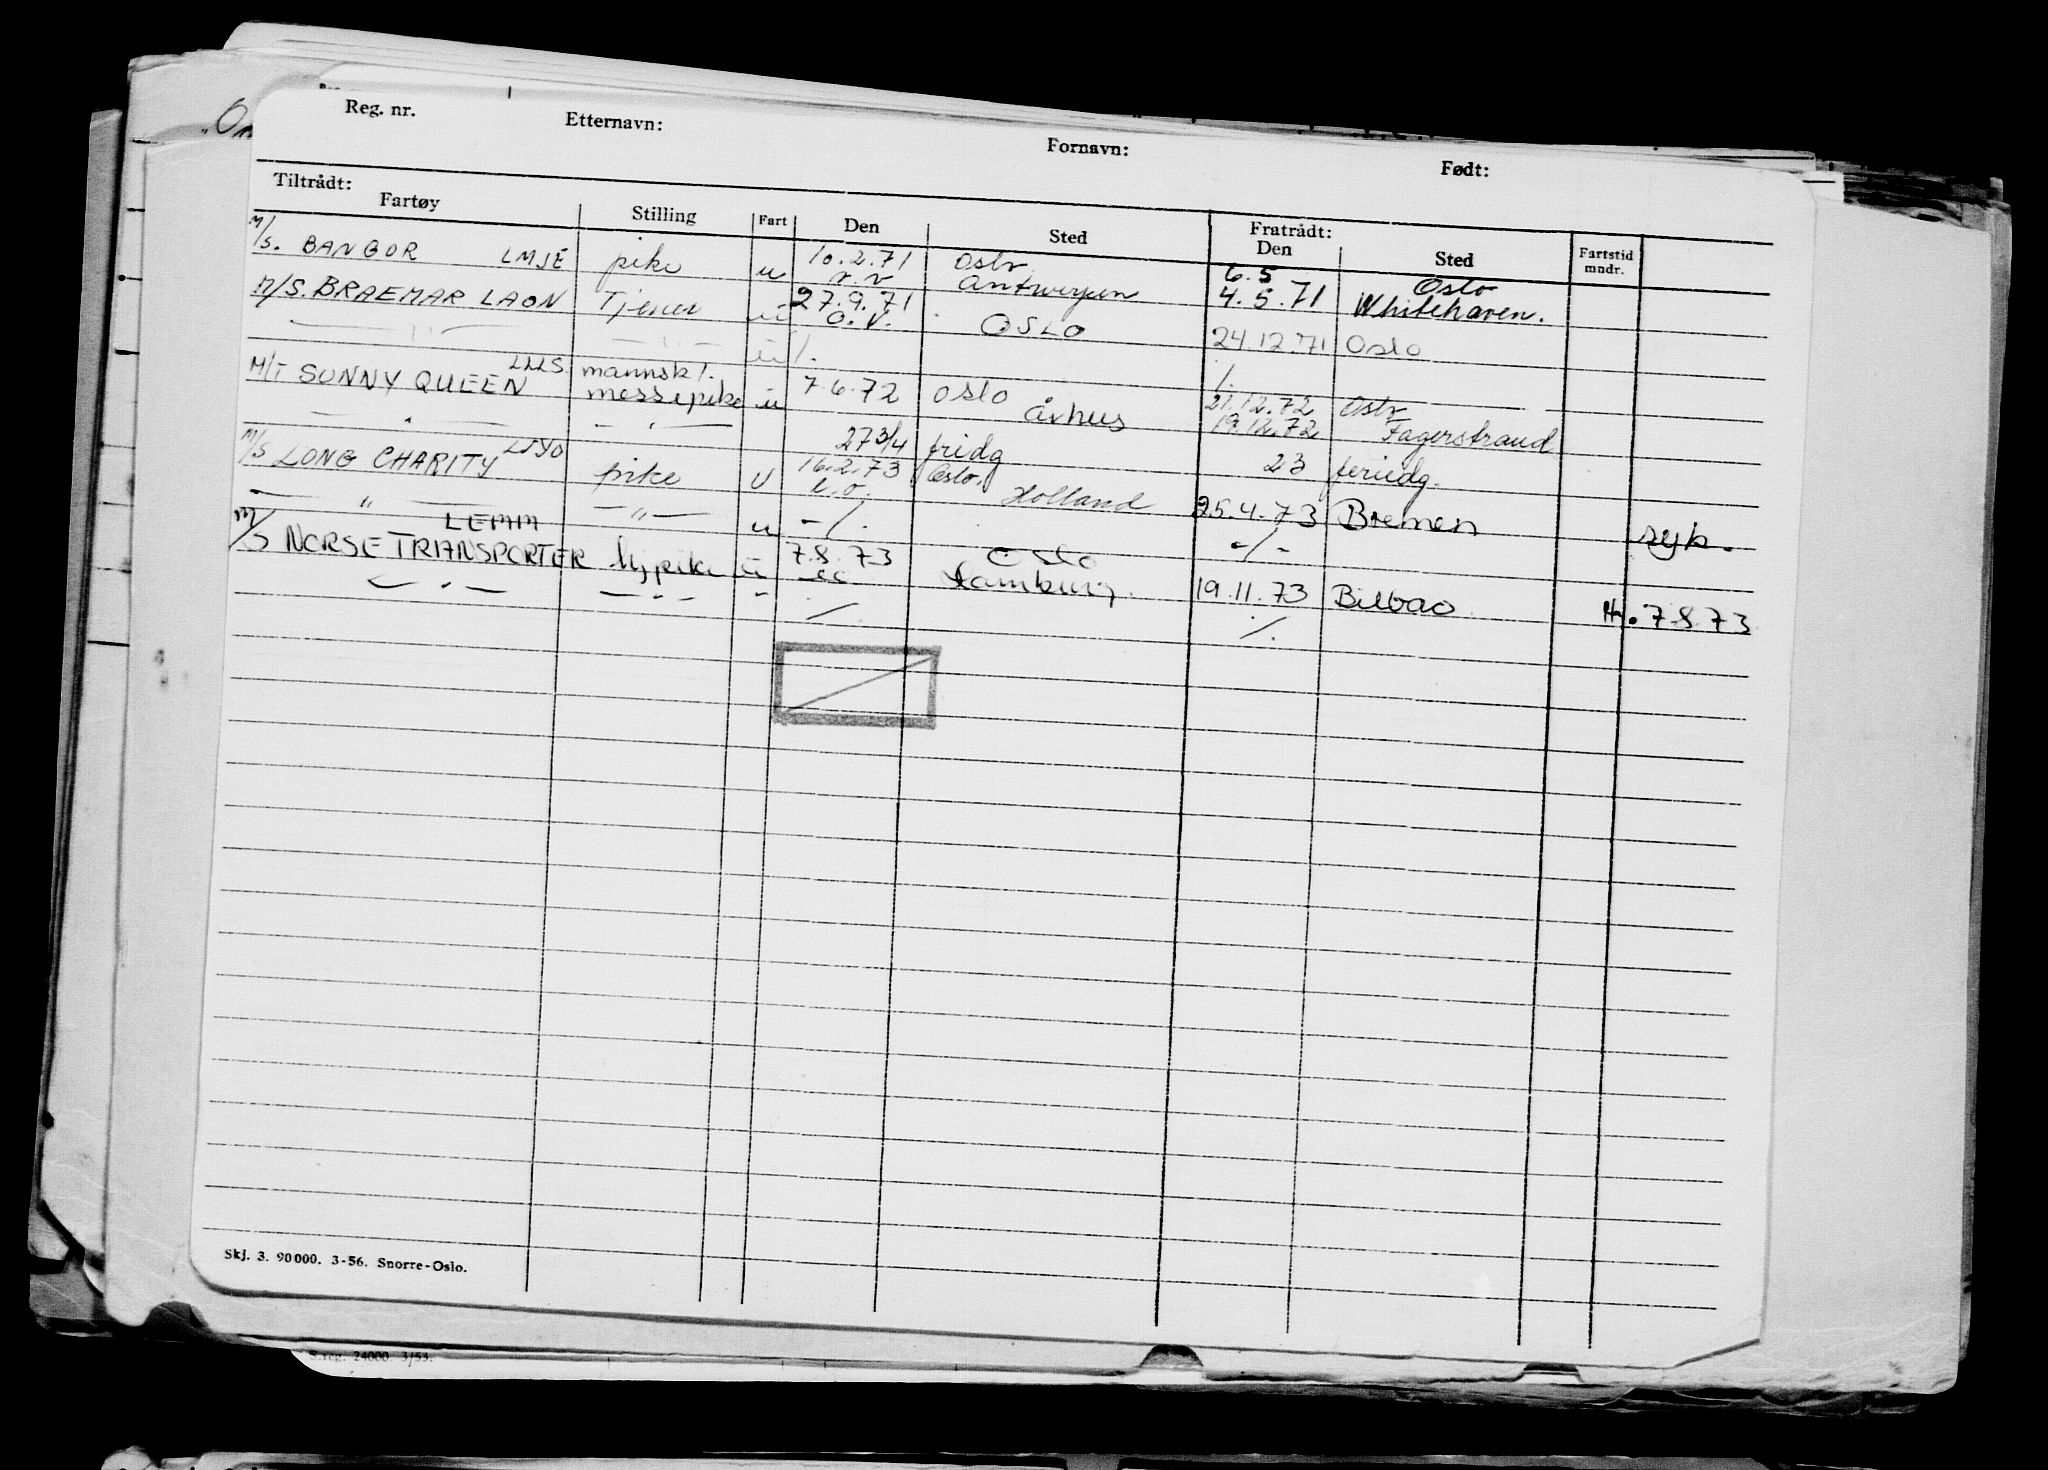 Reg. nr. Etternavn: Fornavn: Født:
Tiltrådt: Fratrådt:
Fartøy Stilling Fart Den Sted Den Sted Fartstid mndr.
M/S. BANGOR LMJE pike u 10.2.71 Oslo 6.5 Oslo
Antwerpen 4.5.71 Whitehaven.
M/S. BRAEMAR LAON Tjener u 27.9.71
— " — — " — u O.V. OSLO 24.12.71 Oslo
/. /.
M/T SUNNY QUEEN LLLS mannsk/. messepike u 7.6.72 Oslo 21.12.72 Oslo
— " — — " — Århus 19.12.72 Fagerstrand
27 3/4 fridg 23 feriedg.
M/S LONG CHARITY LJYO pike u 16.2.73 Oslo.
— " — — " — u Holland 25.4.73 Bremen syk.
-/. -/-
M/S NORSE TRANSPORTER LEMM u 7.8.73 Oslo
— " — — " — " Hamburg. 19.11.73 Bilbao. 7.8.73
/. /.
Skj. 3. 90000. 3-56. Snorre-Oslo.
S.reg. 24000. 3/53.